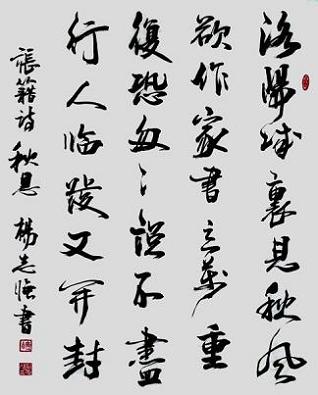 洛陽城裏見秋風
欲作家書意萬重
復恐匆々說不盡
行人临發又開封
張籍詩 秋思 楊志書